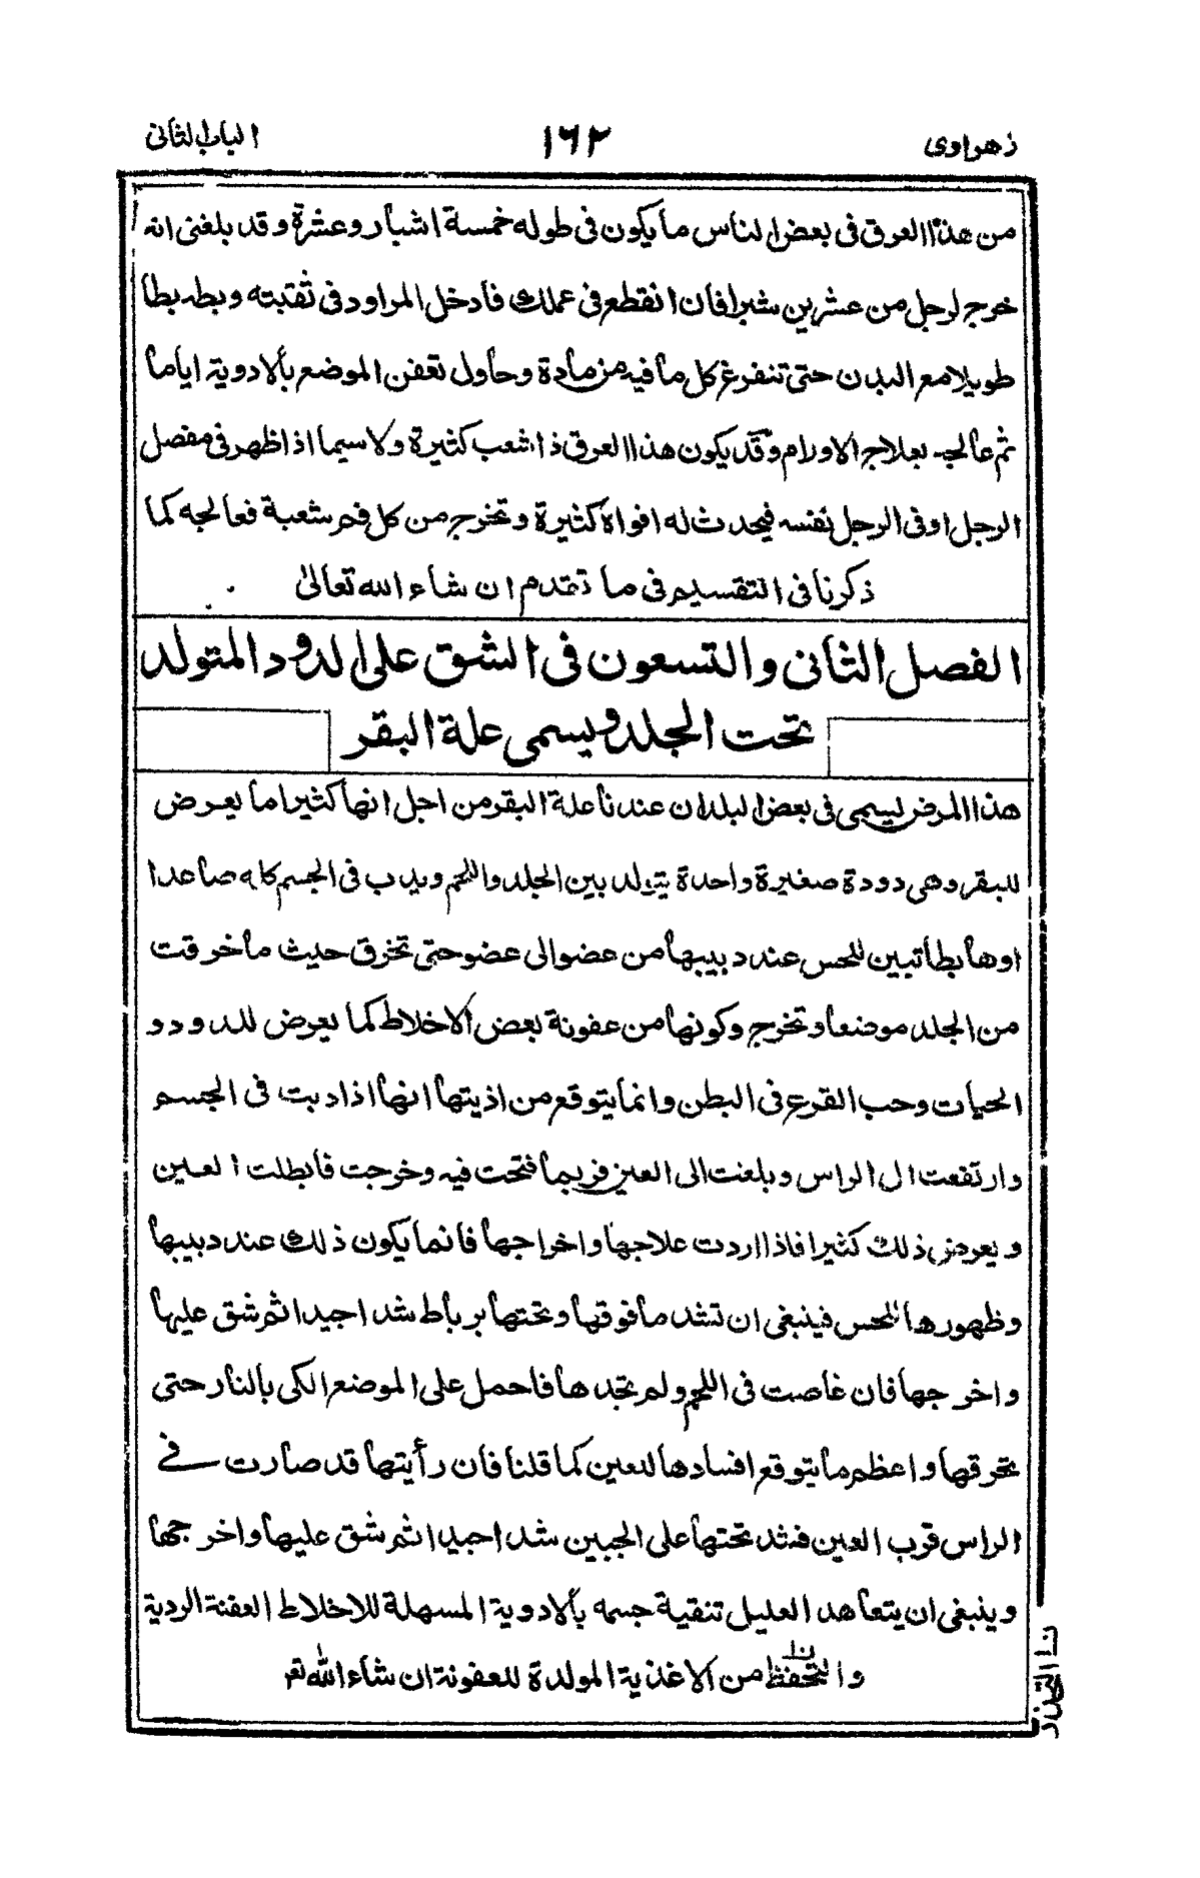 زهراوى
١٦٢
الباب الثانى
من هذا العرق فى بعض الناس ما يكون فى طوله خمسة اشبار وعشرة وقد بلغنى انه
خرج لرجل من عشرين شبرا فان انقطع فى عملك فادخل المراود فى ثقبته وبطه بطا
طويلا مع البدن حتى تنفرغ كل ما فيه من مادة وحاول تعفن الموضع بالادوية اياما
ثم عالجه بعلاج الاورام وقد يكون هذا العرق ذا شعب كثيرة ولا سيما اذا ظهر فى مفصل
الرجل او فى الرجل نفسه فيحدث له افواه كثيرة وتخرج من كل فم شعبة فعالجه كما
ذكرنا فى التقسيم فى ما تقدم ان شاء الله تعالىٰ
الفصل الثانى والتسعون فى الشق على الدود المتولد
تحت الجلد ويسمى علة البقر
هذا المرض يسمى فى بعض البلدان عندنا علة البقر من اجل انها كثيرا ما يعرض
للبقر وهى دودة صغيرة واحدة يتولد بين الجلد واللحم ويدب فى الجسم كله صاعدا
اوهابطا تبين للحس عند دبيبها من عضو الى عضو حتى تخرق حيث ما خرقت
من الجلد موضعا وتخرج وكونها من عفونة بعض الاخلاط كما يعرض للدود و
الحيات وحب القرع فى البطن وانما يتوقع من اذيتها انها اذا دبت فى الجسم
وارتفعت ال الراس وبلغت الى العين فربما فتحت فيه وخرجت فابطلت العين
ويعرض ذلك كثيرا فاذا اردت علاجها واخراجها فانما يكون ذلك عند دبيبها
وظهورها للحس فينبغى ان تشد ما فوقها وتحتها برباط شدا جيدا ثم شق عليها
واخرجها فان غاصت فى اللحم ولم تجدها فاحمل على الموضع الكى بالنار حتى
تحرقها واعظم ما يتوقع افسادها للعين كما قلنا فان رأيتها قد صارت فى
الراس قرب العين فشد تحتها على الجبين شدا جيدا ثم شق عليها واخرجها
وينبغى ان يتعاهد العليل تنقية جسمه بالادوية المسهلة للاخلاط العفنة الردية
والتحفظ من الاغذية المولدة للعفونة ان شاء الله تع